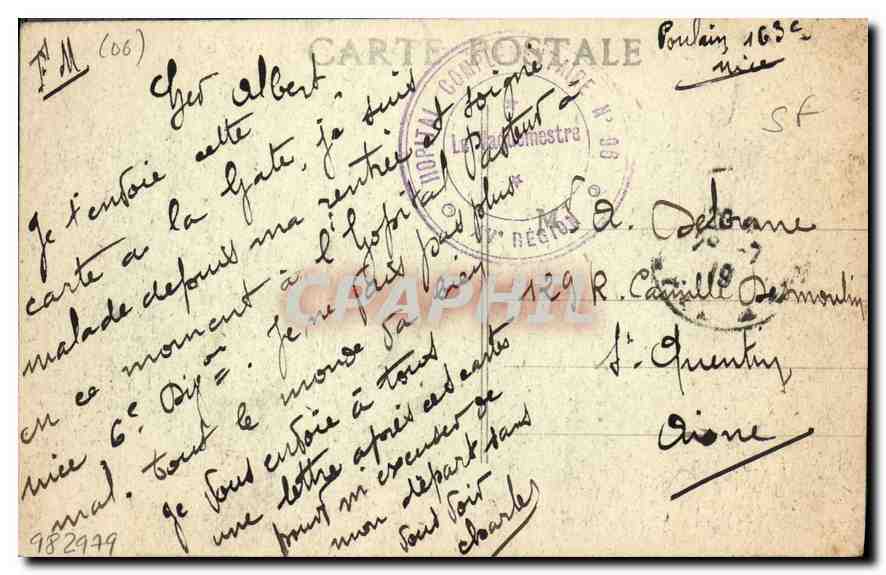 CARTE POSTALE
FM (06)
Poulain 163e
Nice
SF
HOPITAL COMPLEMENTAIRE N° 96
Le Vaguemestre
XVe REGION
Cher Albert
Je t'envoie cette
carte a la hate, je suis
malade depuis ma rentrée et soigné
en ce moment à l'hopital Pasteur à
nice, 6e Divon. Je ne sais pas plus
mal. tout le monde va bien
Je vous envoie à tous
une lettre après ces cartes
pour m'excuser de
mon départ sans
vous voir
Charles
Mr A.
129 R. Camille Desmoulin
St Quentin
Aisne
CPAPHIL
982979